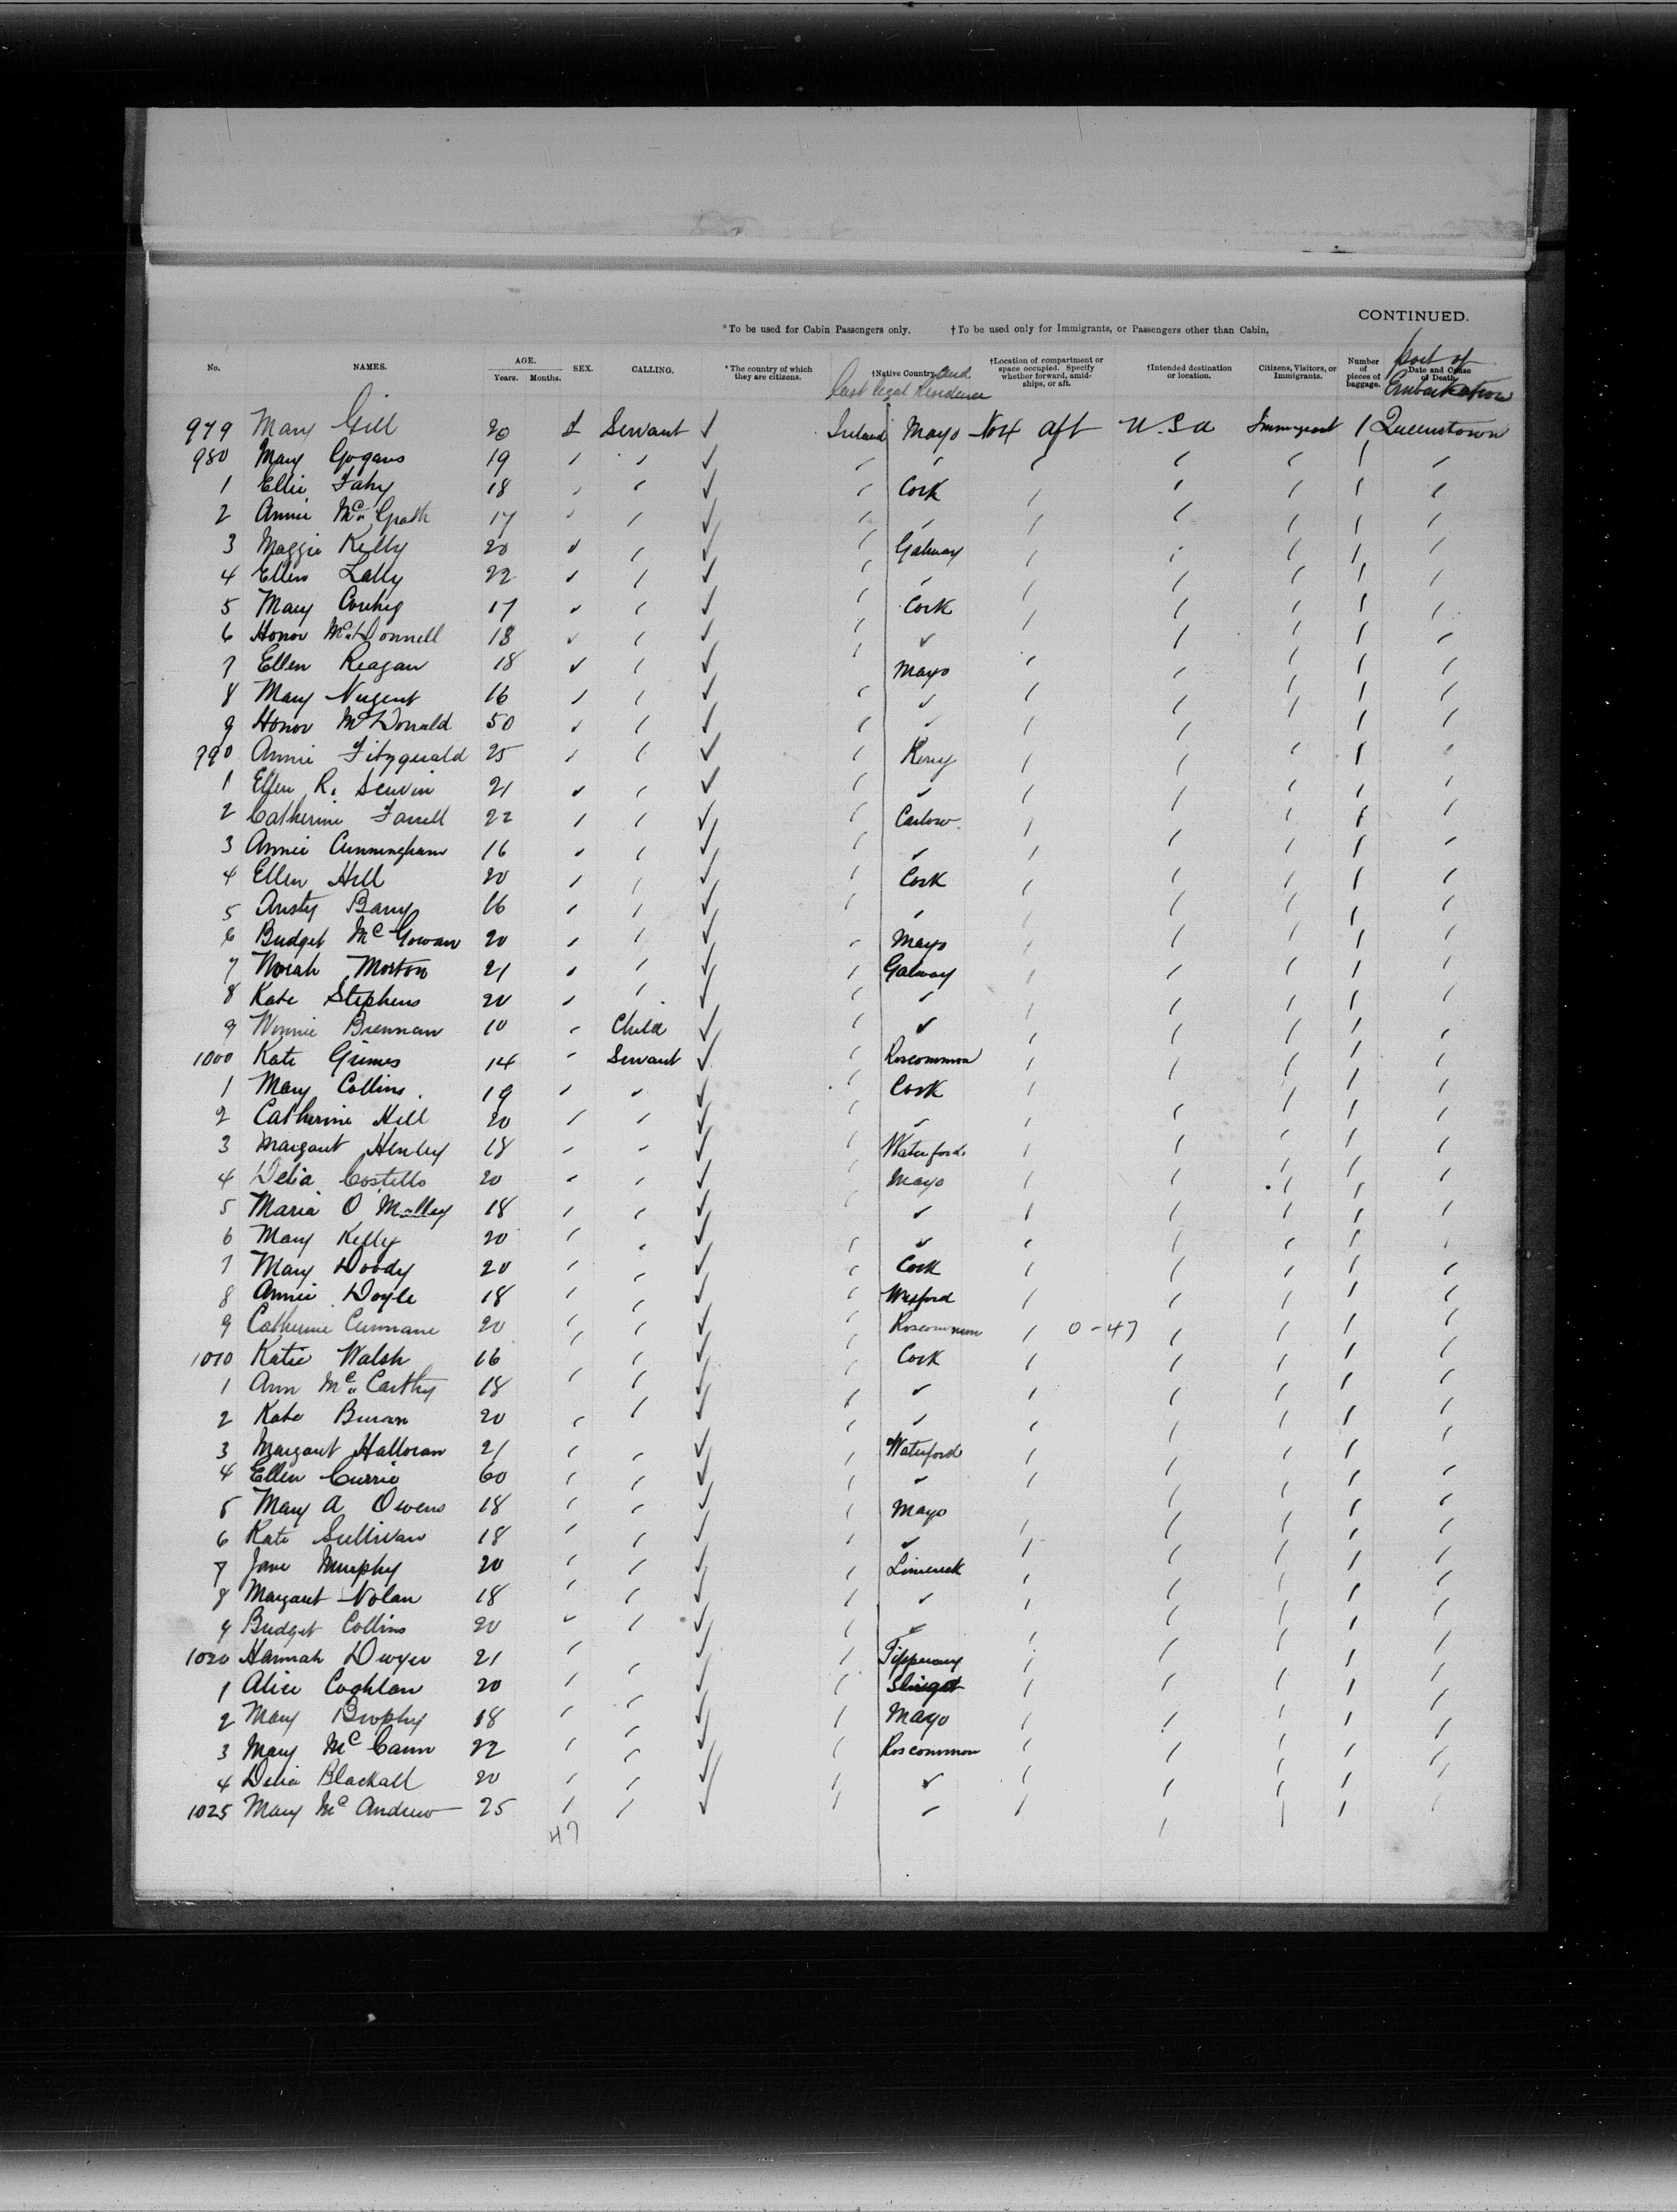 CONTINUED.
*To be used for Cabin Passengers only. †To be used only for Immigrants, or Passengers other than Cabin,
No. NAMES. AGE. Years. Months. SEX. CALLING. *The country of which they are citizens. †Native Country and last legal Residence †Location of compartment or space occupied. Specify whether forward, amidships, or aft. †Intended destination or location. Citizens, Visitors, or Immigrants. Number of pieces of baggage. Date and Cause of Death. port of Embarkation
979 Mary Gill 20 f Servant ✓ Ireland Mayo No 4 aft U.S.A Immigrant 1 Queenstown
980 Mary Gogans 19
1 Ellie Fahy 18 Cork
2 Annie Mc Grath 17
3 Maggie Kelly 20 Galway
4 Ellen Lally 22
5 Mary 17 Cork
6 Honor McDonnell 18
7 Ellen Reagan 18 Mayo
8 Mary Nugent 16
9 Honor McDonald 50
990 Annie Fitzgerald 25 Kerry
1 Ellen R. 21
2 Catherine Farrell 22 Carlow
3 Annie Cunningham 16
4 Ellen Hill 20 Cork
5 Barry 16
6 Bridget McGowan 20 Mayo
7 Norah Morton 21 Galway
8 Kate Stephens 20
9 Winnie Brennan 10 Child
1000 Kate Grimes 14 Servant Roscommon
1 Mary Collins 19 Cork
2 Catherine Hill 20
3 Margaret Henley 18 Waterford
4 Delia Costello 20 Mayo
5 Maria O Malley 18
6 Mary Kelly 20
7 Mary Doody 20 Cork
8 Annie Doyle 18 Wexford
9 Catherine Cunnane 20 Roscommon 0-47
1010 Katie Walsh 16 Cork
1 Ann McCarthy 18
2 Kate 20
3 Margaret Halloran 21 Waterford
4 Ellen Currie 60
5 Mary A Owens 18 Mayo
6 Kate Sullivan 18
7 Jane Murphy 20 Limerick
8 Margaret Nolan 18
9 Bridget Collins 20
1020 Hannah Dwyer 21 Tipperary
1 Alice Coghlan 20
2 Mary Brophy 18 Mayo
3 Mary McCann 22 Roscommon
4 Delia Blackall 20
1025 Mary McAndrew 25
47